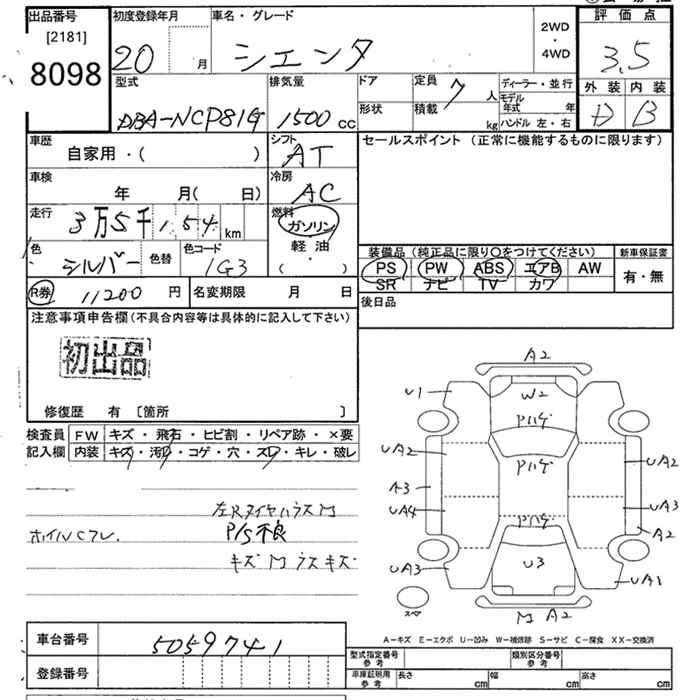 出品番号 [2181] 8098
初度登録年月 20 月
車名・グレード シエンタ
2WD ・ 4WD
評価点 3.5
外装 内装
D B
型式 DBA-NCP81G
排気量 1500 CC
ドア
形状
定員 7 人
積載 kg
ディーラー・並行
モデル年式 年
ハンドル 左・右
車歴 自家用・( )
シフト AT
車検 年 月( 日)
冷房 AC
走行 3万5千154 km
燃料 ガソリン
軽油
( ・ )
色 シルバー 色替
色コード 1G3
R券 11200 円
名変期限 月 日
セールスポイント (正常に機能するものに限ります)
装備品 (純正品に限り○をつけてください)
PS PW ABS エアB AW
SR ナビ TV カワ
新車保証書
有・無
後日品
注意事項申告欄 (不具合内容等は具体的に記入して下さい)
初出品
修復歴 有 [箇所 ]
検査員記入欄
FW キズ・飛石・ヒビ割・リペア跡・×要
内装 キズ・汚レ・コゲ・穴・スレ・キレ・破レ
左Rタイヤハウス M
ホイルCフレ. P/S不良
キズ M ラス キズ
A2
U1
W2
Pハゲ
UA2
Pハゲ
UA2
A3
UA4
UA3
Pハゲ
A2
UA3
U3
UA1
スペア
M A2
A-キズ E-エクボ U-凹み W-補修跡 S-サビ C-腐食 XX-交換済
車台番号 5059741
登録番号
型式指定番号 参考
類別区分番号 参考
車庫証明用 参考 長さ cm 幅 cm 高さ cm